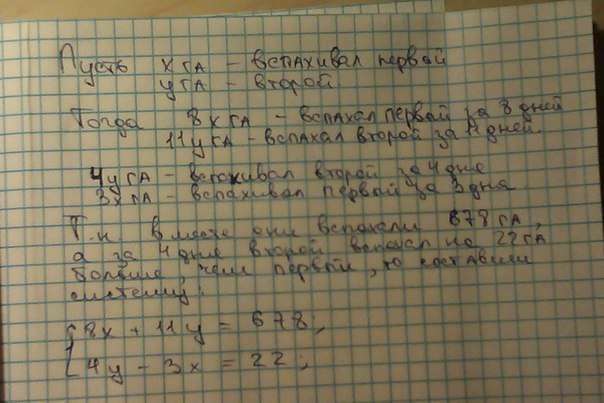 Пусть х га - вспахивал первый
у га - второй
Тогда 8х га - вспахал первый за 8 дней
11у га - вспахал второй за 11 дней
4у га - вспахивал второй за 4 дне
3х га - вспахивал первый за 3 дня
Т.к. вместе они вспахали 678 га,
а за 4 дне второй вспахал на 22 га
больше, чем первый, то составим
систему:
{8х + 11у = 678;
4у - 3х = 22;